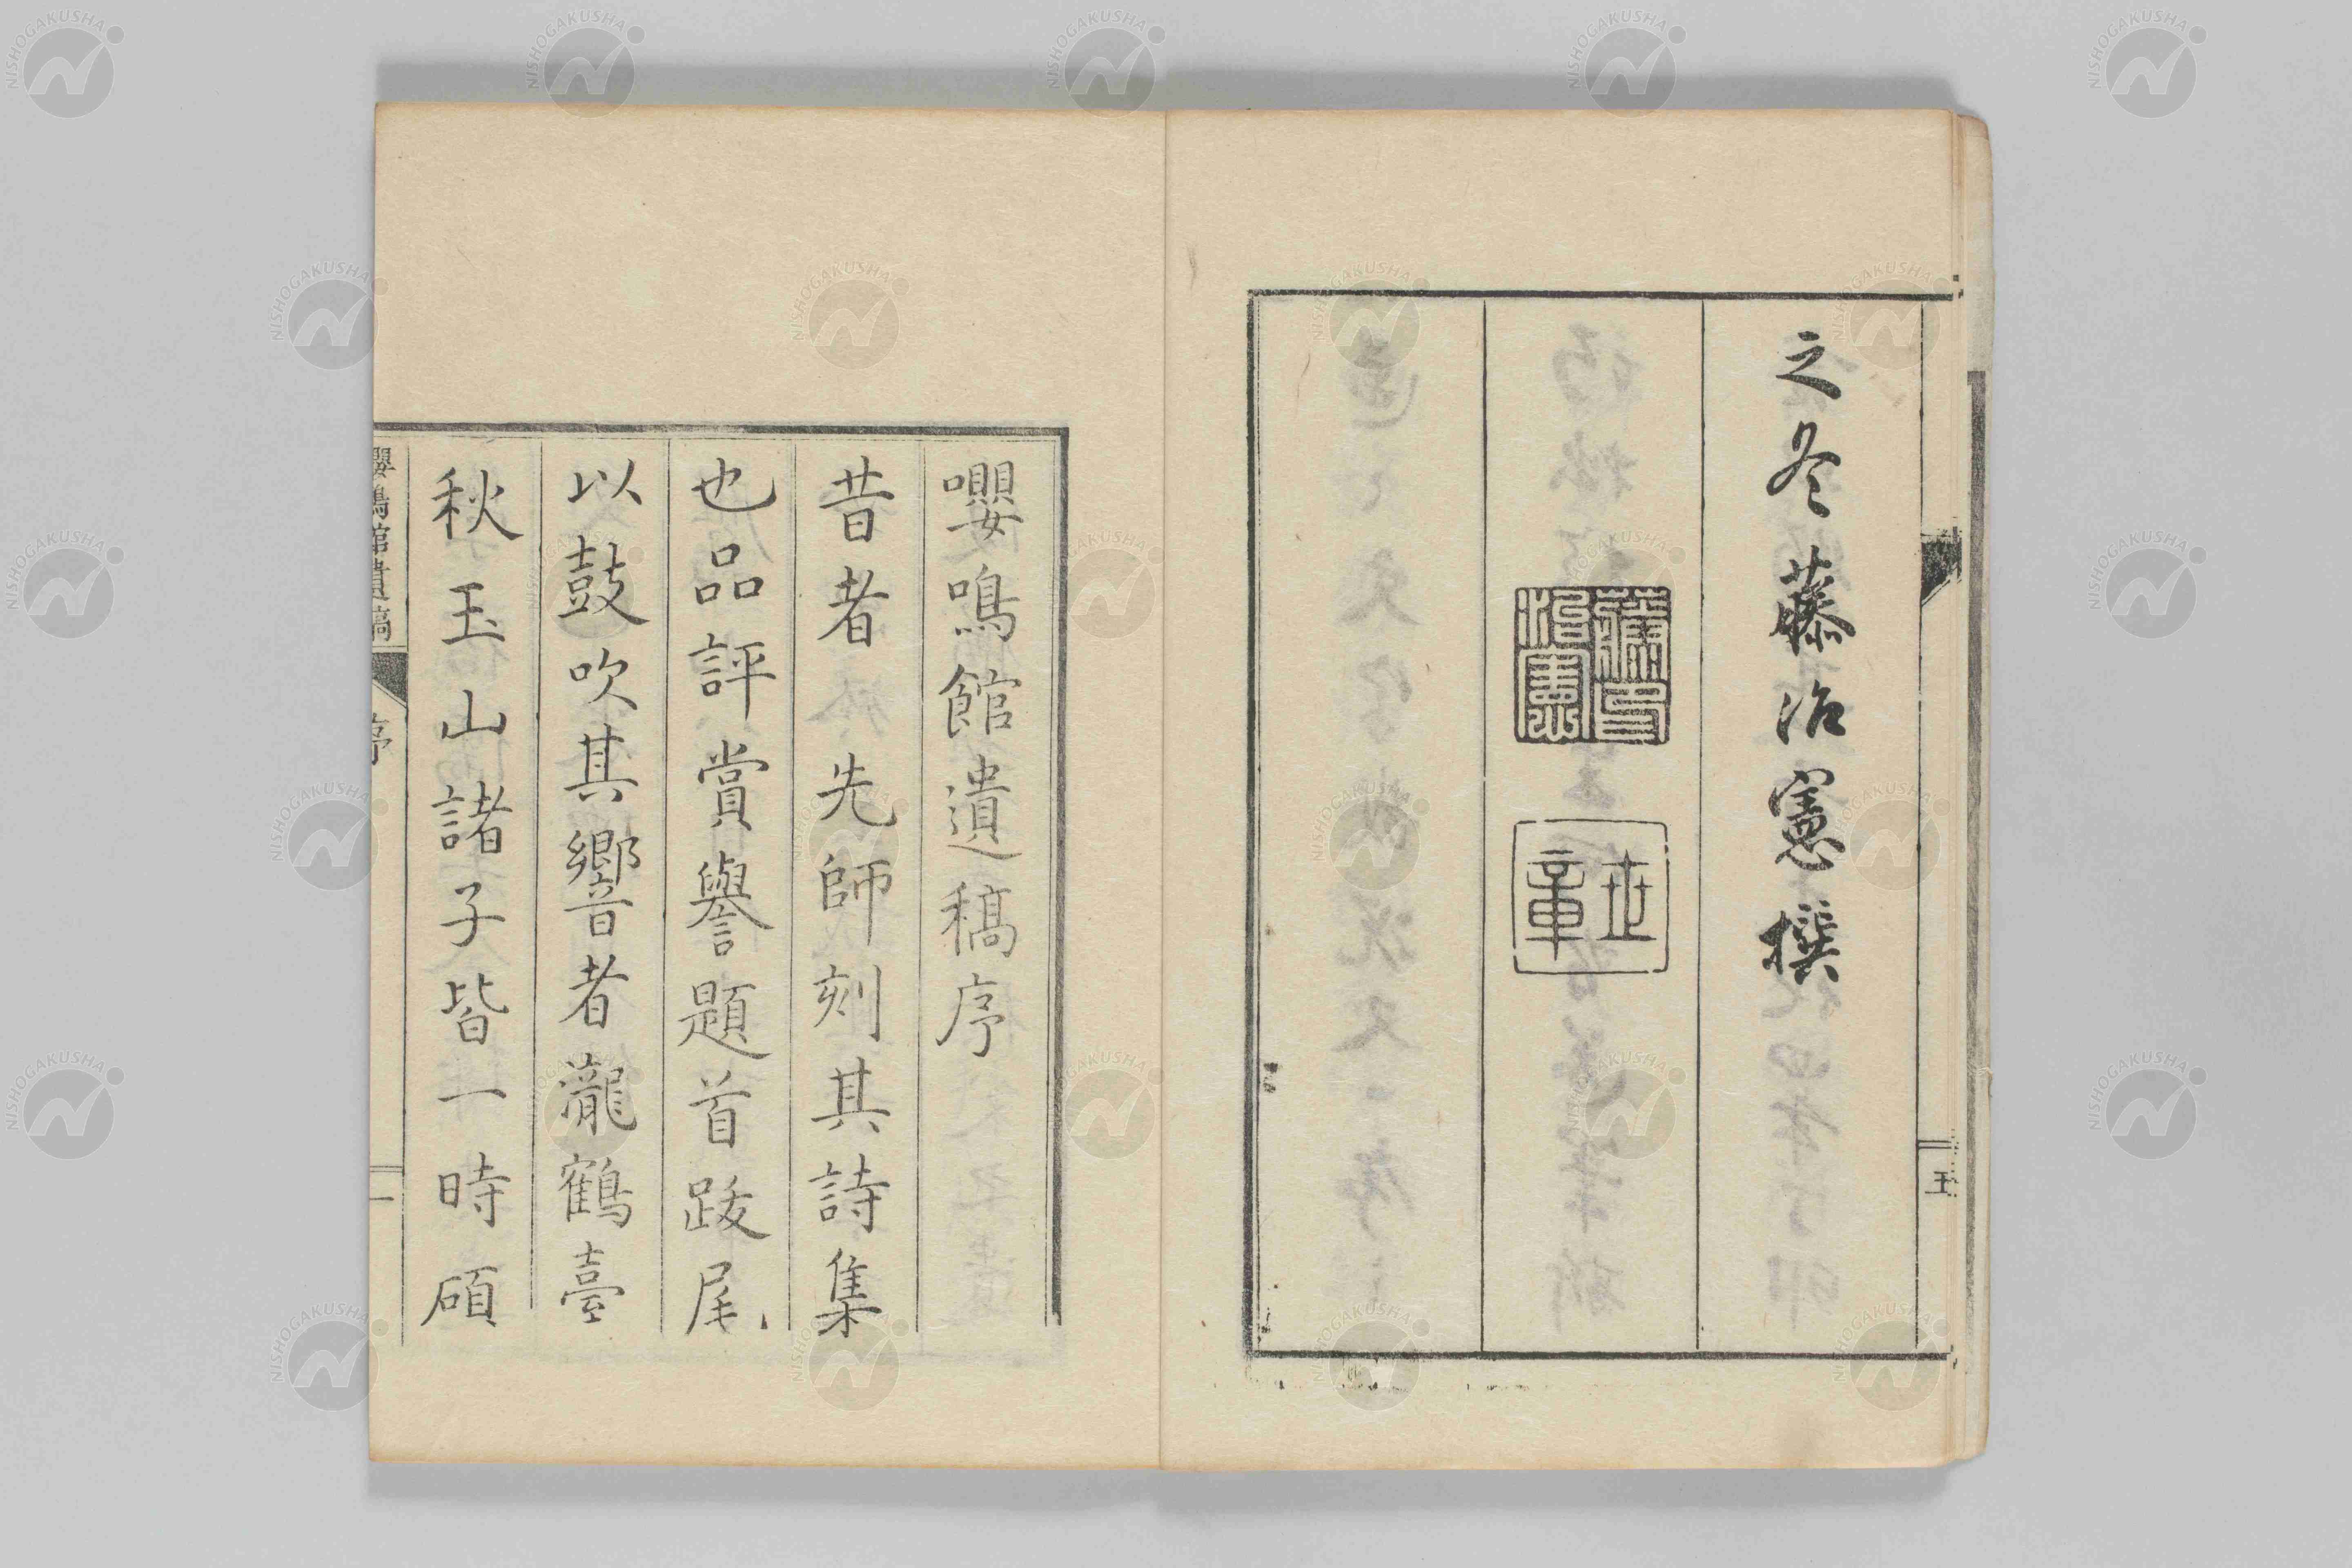 之冬藤治憲撰
藤印治憲
世章
五
嚶鳴館遺稿序
昔者先師刻其詩集
也品評賞譽題首跋尾
以鼓吹其響者瀧鶴臺
秋玉山諸子皆一時碩
嚶鳴館遺稿
序
一
NISHOGAKUSHA